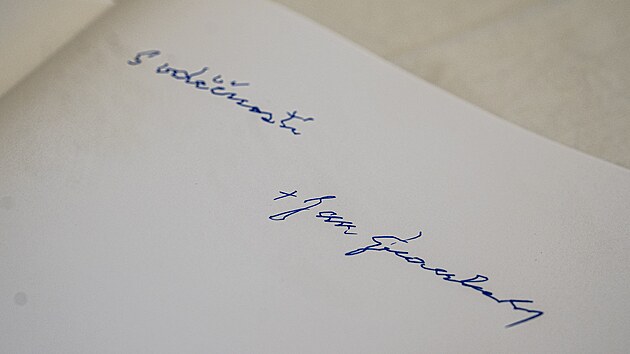 S vděčností
+ Jan Graubner